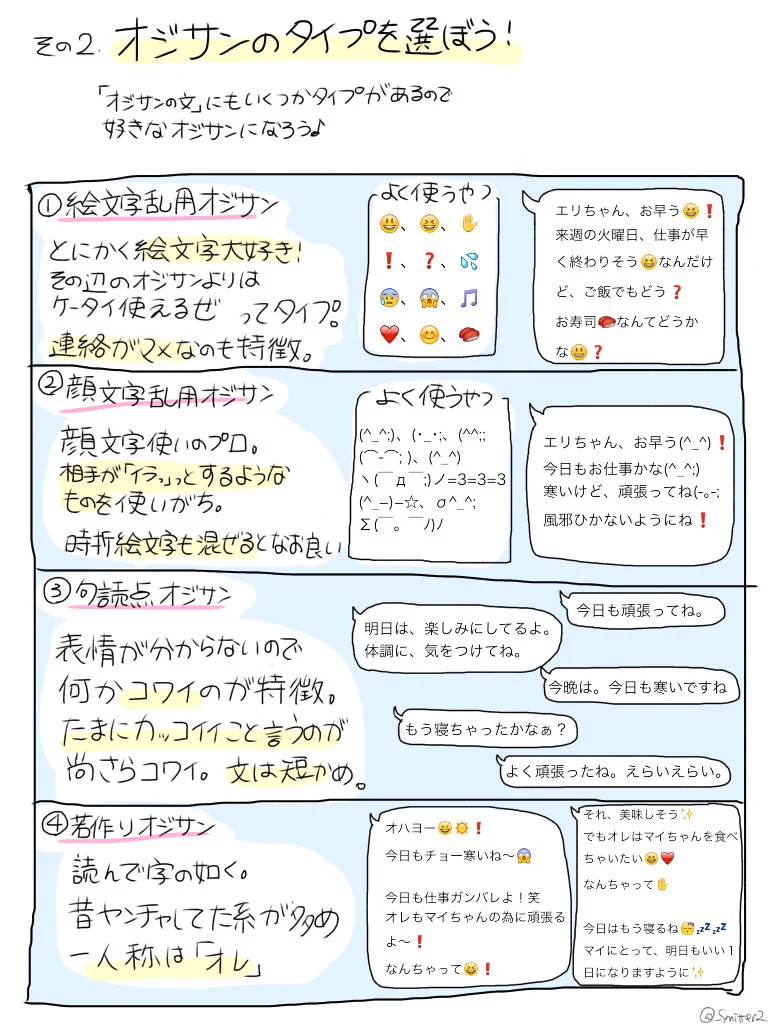 その2. オジサンのタイプを選ぼう!
「オジサンの文」にもいくつかタイプがあるので
好きなオジサンになろう♪
①絵文字乱用オジサン
とにかく絵文字大好き!
その辺のオジサンよりは
ケータイ使えるぜ ってタイプ。
連絡がマメなのも特徴。
よく使うやつ
😃、😆、✋
❗、❓、💦
😰、😱、🎵
❤️、😊、🍣
エリちゃん、お早う😆❗
来週の火曜日、仕事が早
く終わりそう😆なんだけ
ど、ご飯でもどう❓
お寿司🍣なんてどうか
な😃❓
②顔文字乱用オジサン
顔文字使いのプロ。
相手が「イラッ」っとするような
ものを使いがち。
時折絵文字も混ぜるとなお良い
よく使うやつ
(^_^;)、(・_・;、(^^;;
(⌒-⌒; )、(^_^)
ヽ(￣д￣;)ノ=3=3=3
(^_−)−☆、σ^_^;
Σ(￣。￣ﾉ)ﾉ
エリちゃん、お早う(^_^)❗
今日もお仕事かな(^_^;)
寒いけど、頑張ってね(-｡-;
風邪ひかないようにね❗
③句読点オジサン
表情が分からないので
何かコワイのが特徴。
たまにカッコイイこと言うのが
尚さらコワイ。文は短かめ。
今日も頑張ってね。
明日は、楽しみにしてるよ。
体調に、気をつけてね。
今晩は。今日も寒いですね
もう寝ちゃったかなぁ？
よく頑張ったね。えらいえらい。
④若作りオジサン
読んで字の如く。
昔ヤンチャしてた系が多め
一人称は「オレ」
オハヨー😆☀️❗
今日もチョー寒いね〜😱
今日も仕事ガンバレよ！笑
オレもマイちゃんの為に頑張る
よ〜❗
なんちゃって😆❗
それ、美味しそう✨
でもオレはマイちゃんを食べ
ちゃいたい😆❤️
なんちゃって✋
今日はもう寝るね😴💤💤
マイにとって、明日もいい１
日になりますように✨
@Smitter2